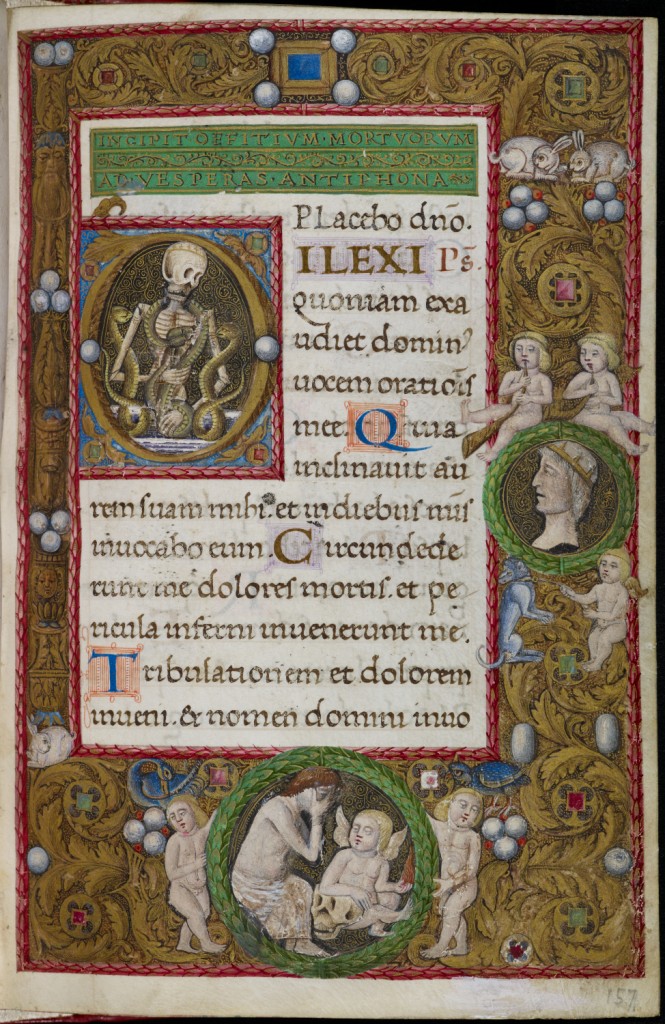 INCIPIT·OFFITIVM·MORTVORVM
AD·VESPERAS·ANTIPHONA
PLacebo dño.
DILEXI Ps̃.
quoniam exa
udiet dominꝰ
uocem oratiõis
mee. Quia
inclinauit au
rem suam mihi. et in diebus mis̃
inuocabo eum. Circundede
runt me dolores mortis. et pe
ricula inferni inuenerunt me.
Tribulationem et dolorem
inueni. & nomen domini inuo
157